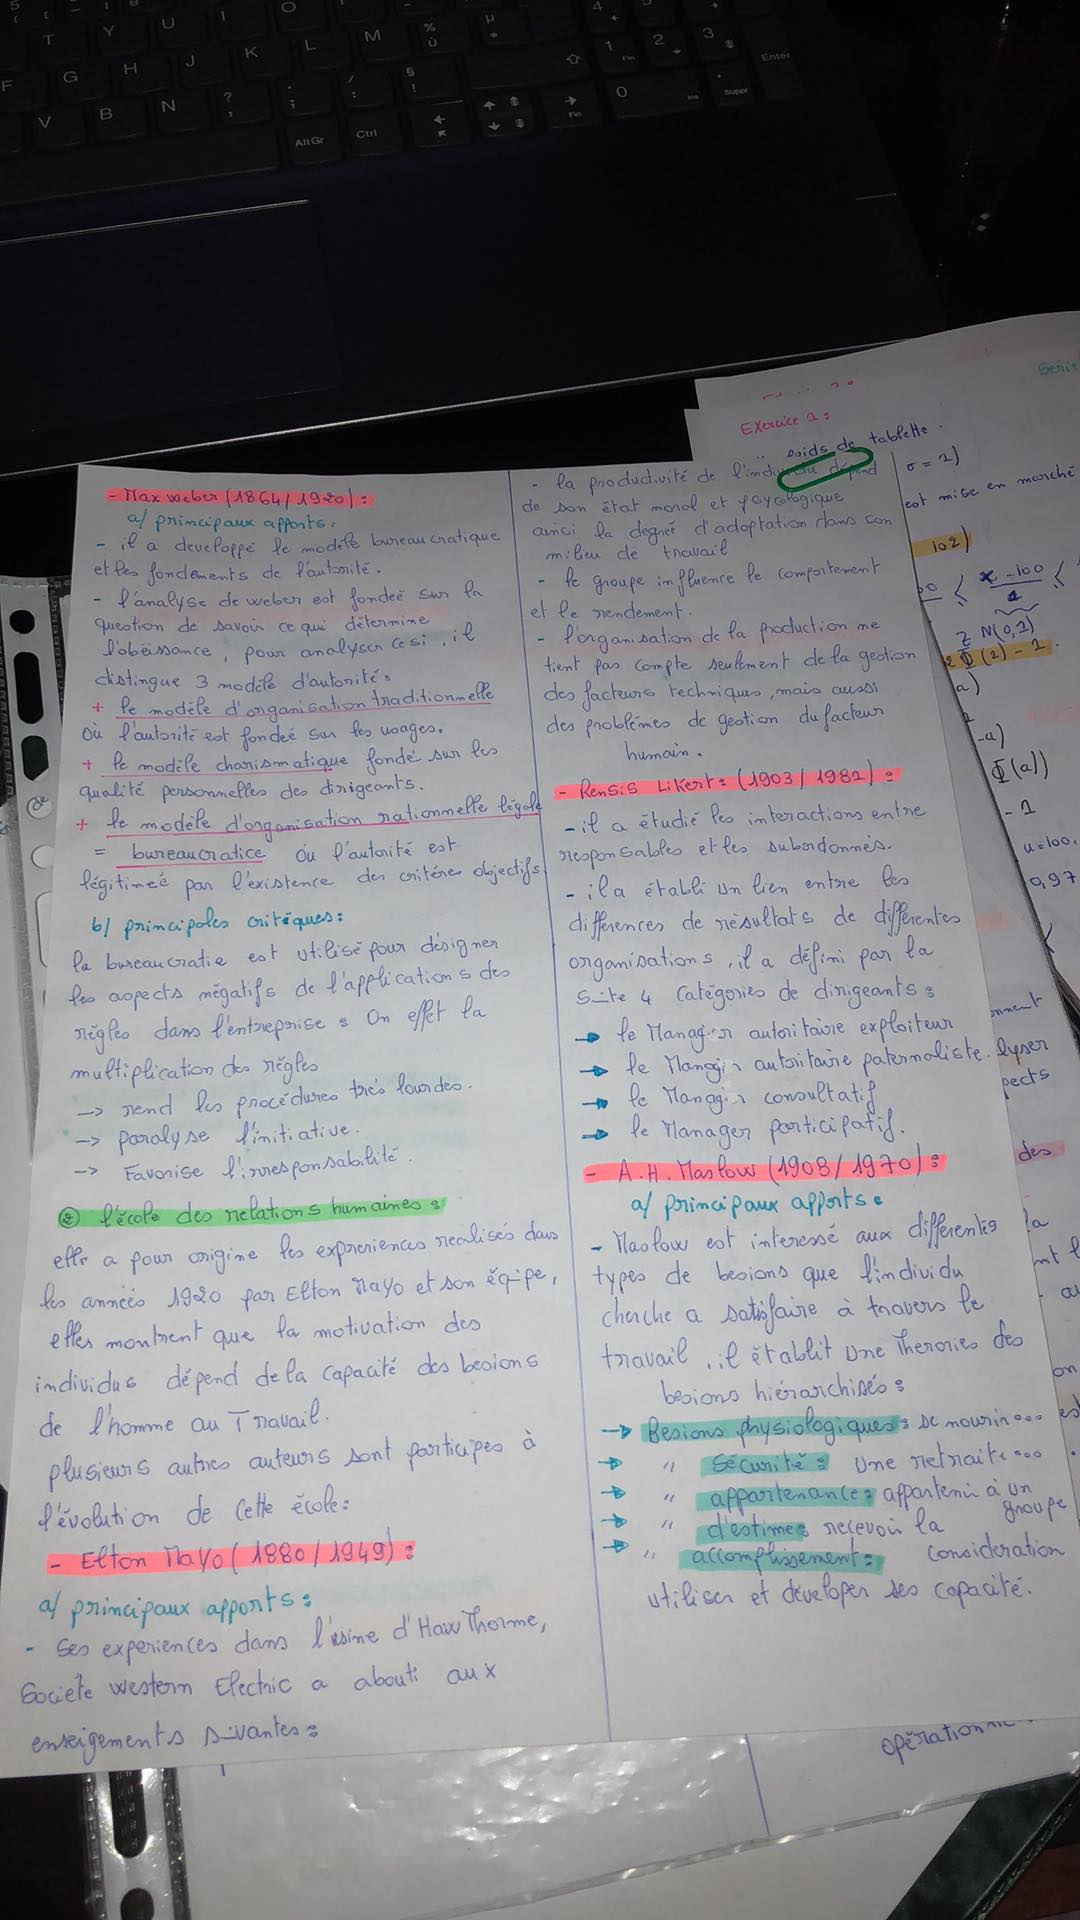 - Max weber (1864/1920):
a/ principaux apports:
- il a developpé le modèle bureaucratique
et les fondements de l'autorité.
- l'analyse de weber est fondeé sur la
question de savoir ce qui détermine
l'obéissance, pour analyser cesi, il
distingue 3 modèle d'autorité:
+ le modèle d'organisation traditionnelle
où l'autorité est fondeé sur les usages.
+ le modèle charismatique fondé sur les
qualité personnelles des dirigeants.
+ le modèle d'organisation rationnelle légale
= bureaucratice où l'autorité est
légitimeé par l'existence des critères objectifs.
b/ principales critiques:
la bureaucratie est utilisé pour désigner
les aspects négatifs de l'applications des
règles dans l'entreprise: On effet la
multiplication des règles
-> rend les procédures très lourdes.
-> paralyse l'initiative.
-> Favorise l'irresponsabilité.
② l'école des relations humaines:
elle a pour origine les expreriences realisés dans
les années 1920 par Elton Mayo et son équipe,
elles montrent que la motivation des
individus dépend de la capacité des besions
de l'homme au Travail.
plusieurs autres auteurs sont participes à
l'évolution de cette école:
- Elton Mayo (1880/1949):
a/ principaux apports:
- Ses experiences dans l'usine d'HawThorme,
Societe western Electric a abouti aux
enseigements suivantes:
- la productivité de l'individu dépend
de son état moral et psycologique
ainsi la degré d'adoptation dans son
milieu de travail
- le groupe influence le comportement
et le rendement.
- l'organisation de la production ne
tient pas compte seulement de la gestion
des facteurs techniques, mais aussi
des problèmes de gestion du facteur
humain.
- Rensis Likert: (1903/1981):
- il a étudié les interactions entre
responsables et les subordonnés.
- il a établi un lien entre les
différences de résultats de différentes
organisations, il a défini par la
Suite 4 Catégories de dirigeants:
→ le Manager autoritaire exploiteur
→ le Manager autoritaire paternaliste.
→ le Manager consultatif
→ le Manager participatif.
- A.H. Maslow (1908/1970):
a/ principaux apports:
- Maslow est interessé aux differentes
types de besions que l'individu
cherche a satisfaire à travers le
travail, il établit une Therories des
besions hiérarchisés:
→ Besions physiologiques: se nourir...
→ " Sécurité: une retraite...
→ " appartenance: appartenir à un
groupe
→ " d'estime: recevoir la
consideration
→ " accomplissement:
utiliser et développer ses capacité.
Exercice 1:
poids de tablette.
σ = 1)
est mise en marché
102)
x - 100
Z N(0,1)
2Φ(2) - 1.
a)
-a)
Φ(a))
- 1
u=100.
0,97
lyser
pects
des
la
opérationne